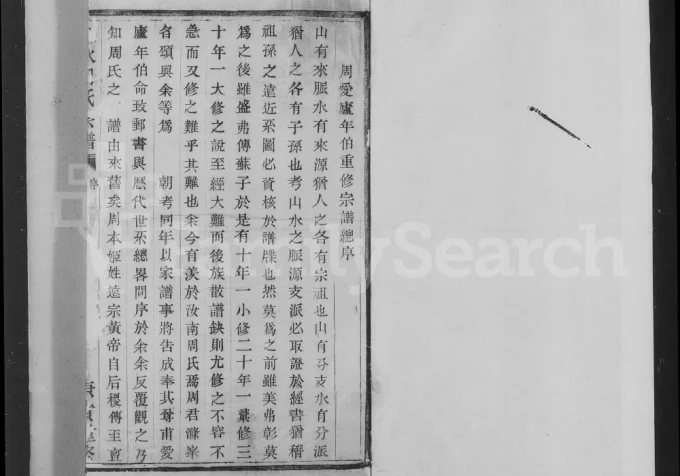 周愛廬年伯重修宗譜總序
山有來脈水有來源猶人之各有宗祖也山有分支水有分派
猶人之各有子孫也考山水之脈源支派必取證於經書猶稽
祖孫之遠近系圖必資核於譜牒也然莫爲之前雖美弗彰莫
爲之後雖盛弗傳蘇子於是有十年一小修二十年一業修三
十年一大修之說至經大難而後族散譜缺則尤修之不容不
急而又修之難乎其難也余今有羨於汝南周氏焉周君滌峯
者頌與余等爲 朝考同年以家譜事將吿成奉其尊甫愛
廬年伯命致郵書與歷代世系總畧問序於余余反覆觀之乃
知周氏之 譜由來舊矣周本姬姓遠宗黃帝自后稷傳至亶
氏宗譜 序
FamilySearch